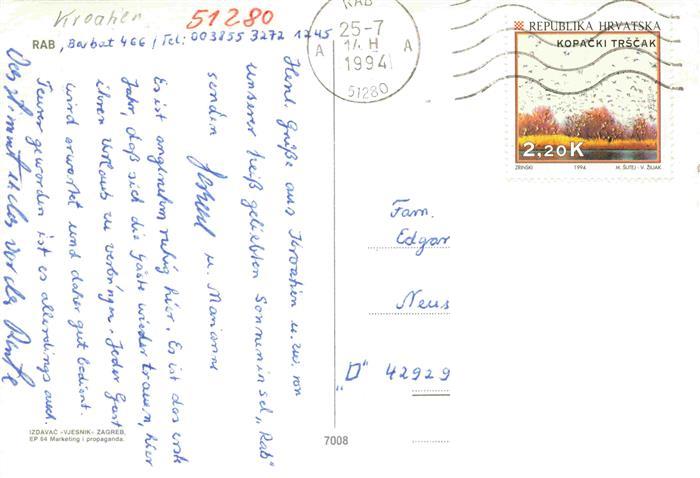 Kroatien
51280
RAB, Barbat 466 / Tel: 003855 3272 1245
Herzl. Grüße aus Kroatien u. zw. von
unserer heiß geliebten Sonneninsel „Rab"
senden
u. Marianne
Es ist angenehm ruhig hier. Es ist das erste
Jahr, daß sich die Gäste wieder trauen, hier
ihren Urlaub zu verbringen. Jeder Gast
wird erwartet und daher gut bedient.
Teurer geworden ist es allerdings auch.
Das stimmt
IZDAVAČ «VJESNIK» ZAGREB,
EP 64 Marketing i propaganda.
7008
RAB
25-7
17. H
1994
A A
51280
REPUBLIKA HRVATSKA
KOPAČKI TRŠČAK
2,20K
ZRINSKI 1994 M. ŠUTEJ - V. ŽILJAK
Fam.
Edgar
Neus
„D" 42929